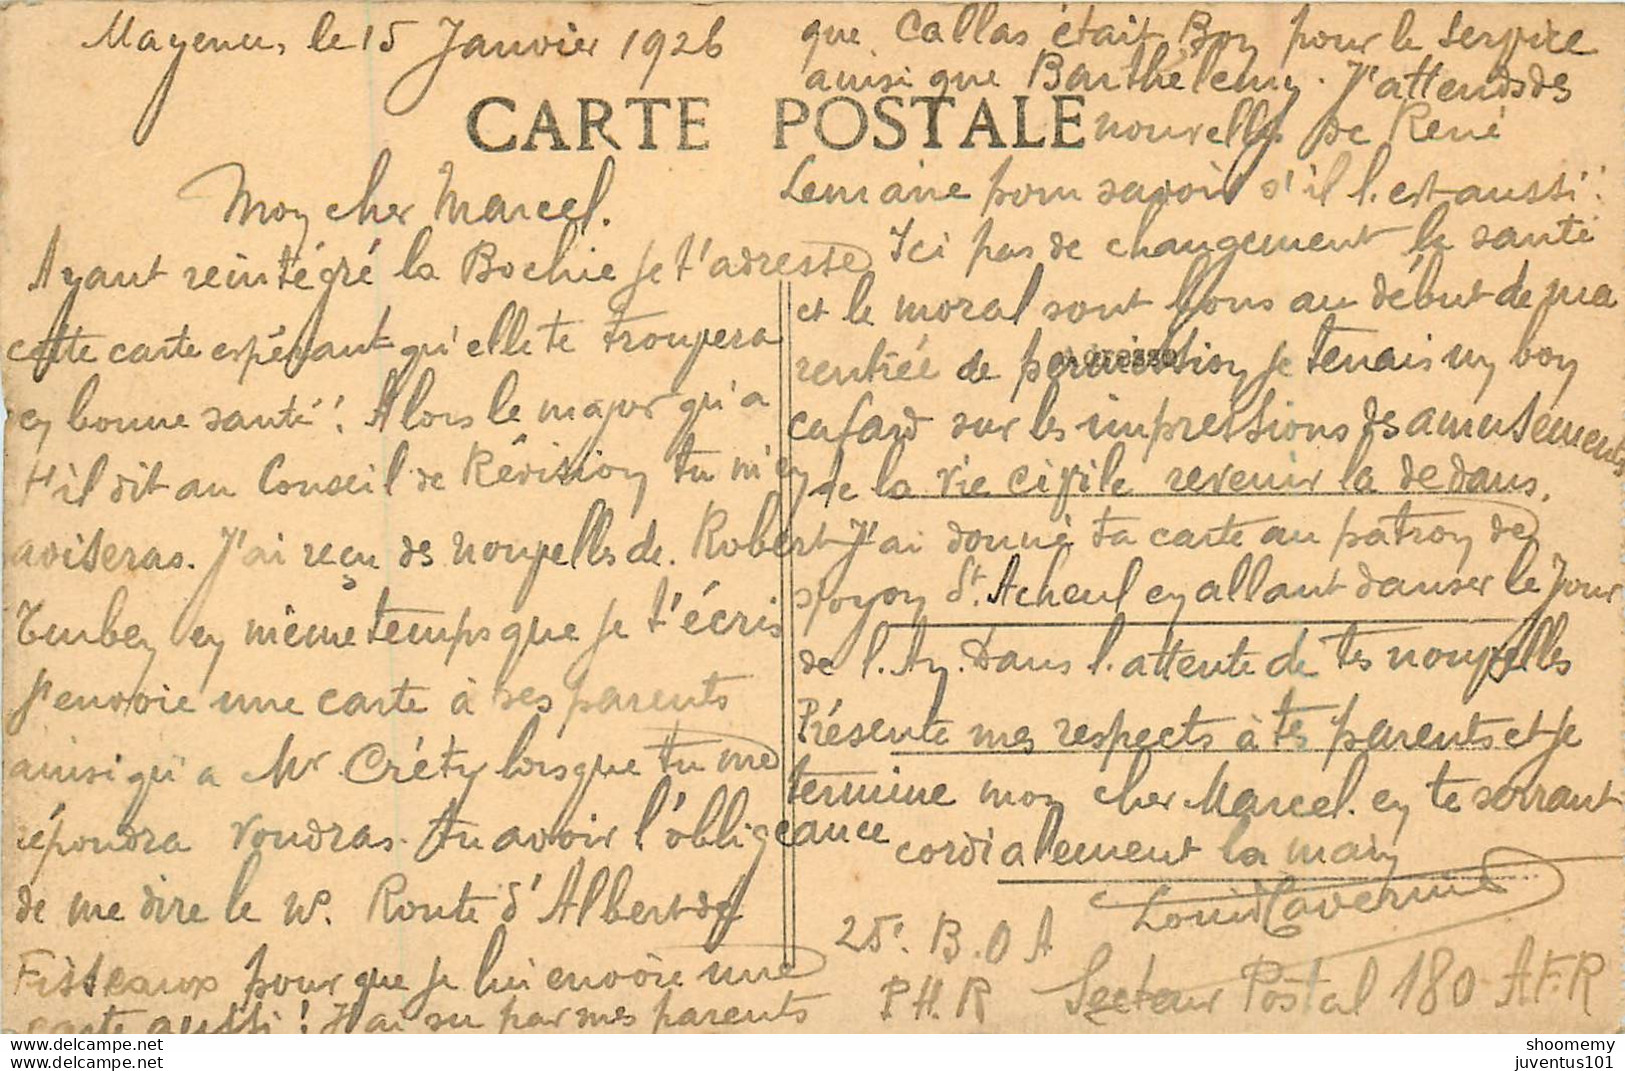 Mayence, le 15 Janvier 1926
CARTE POSTALE
Mon cher Marcel.
Ayant reintégré la Bochie je t'adresse
cette carte espérant qu'elle te trouvera
en bonne santé! Alors le major qu'a
t'il dit au Conseil de Révision tu m'en
aviseras. J'ai reçu des nouvelles de Robert
en même temps que je t'écris
j'envoie une carte à ses parents
ainsi qu'a Mr Créty lorsque tu me
répondra voudras-tu avoir l'obligeance
de me dire le No. Route d'Albert de
pour que je lui envoie une
carte aussi! J'ai su par mes parents
que Callas était Bon pour le Service
ainsi que Barthélemy. J'attends des
nouvelles de René
Lemaire pour savoir s'il l'est aussi!
Ici pas de changement la santé
et le moral sont bons au début de ma
rentrée de permission je tenais un bon
cafard sur les impressions des amusements
de la vie civile revenir la dedans.
J'ai donné ta carte au patron de
St. Acheul en allant danser le Jour
de l'An. Dans l'attente de tes nouvelles
Présente mes respects à tes parents et je
termine mon cher Marcel. en te serrant
cordialement la main
Louis Caverne
25e. B.O A
P.H.R Secteur Postal 180 A.F.R
shoomemy
juventus101